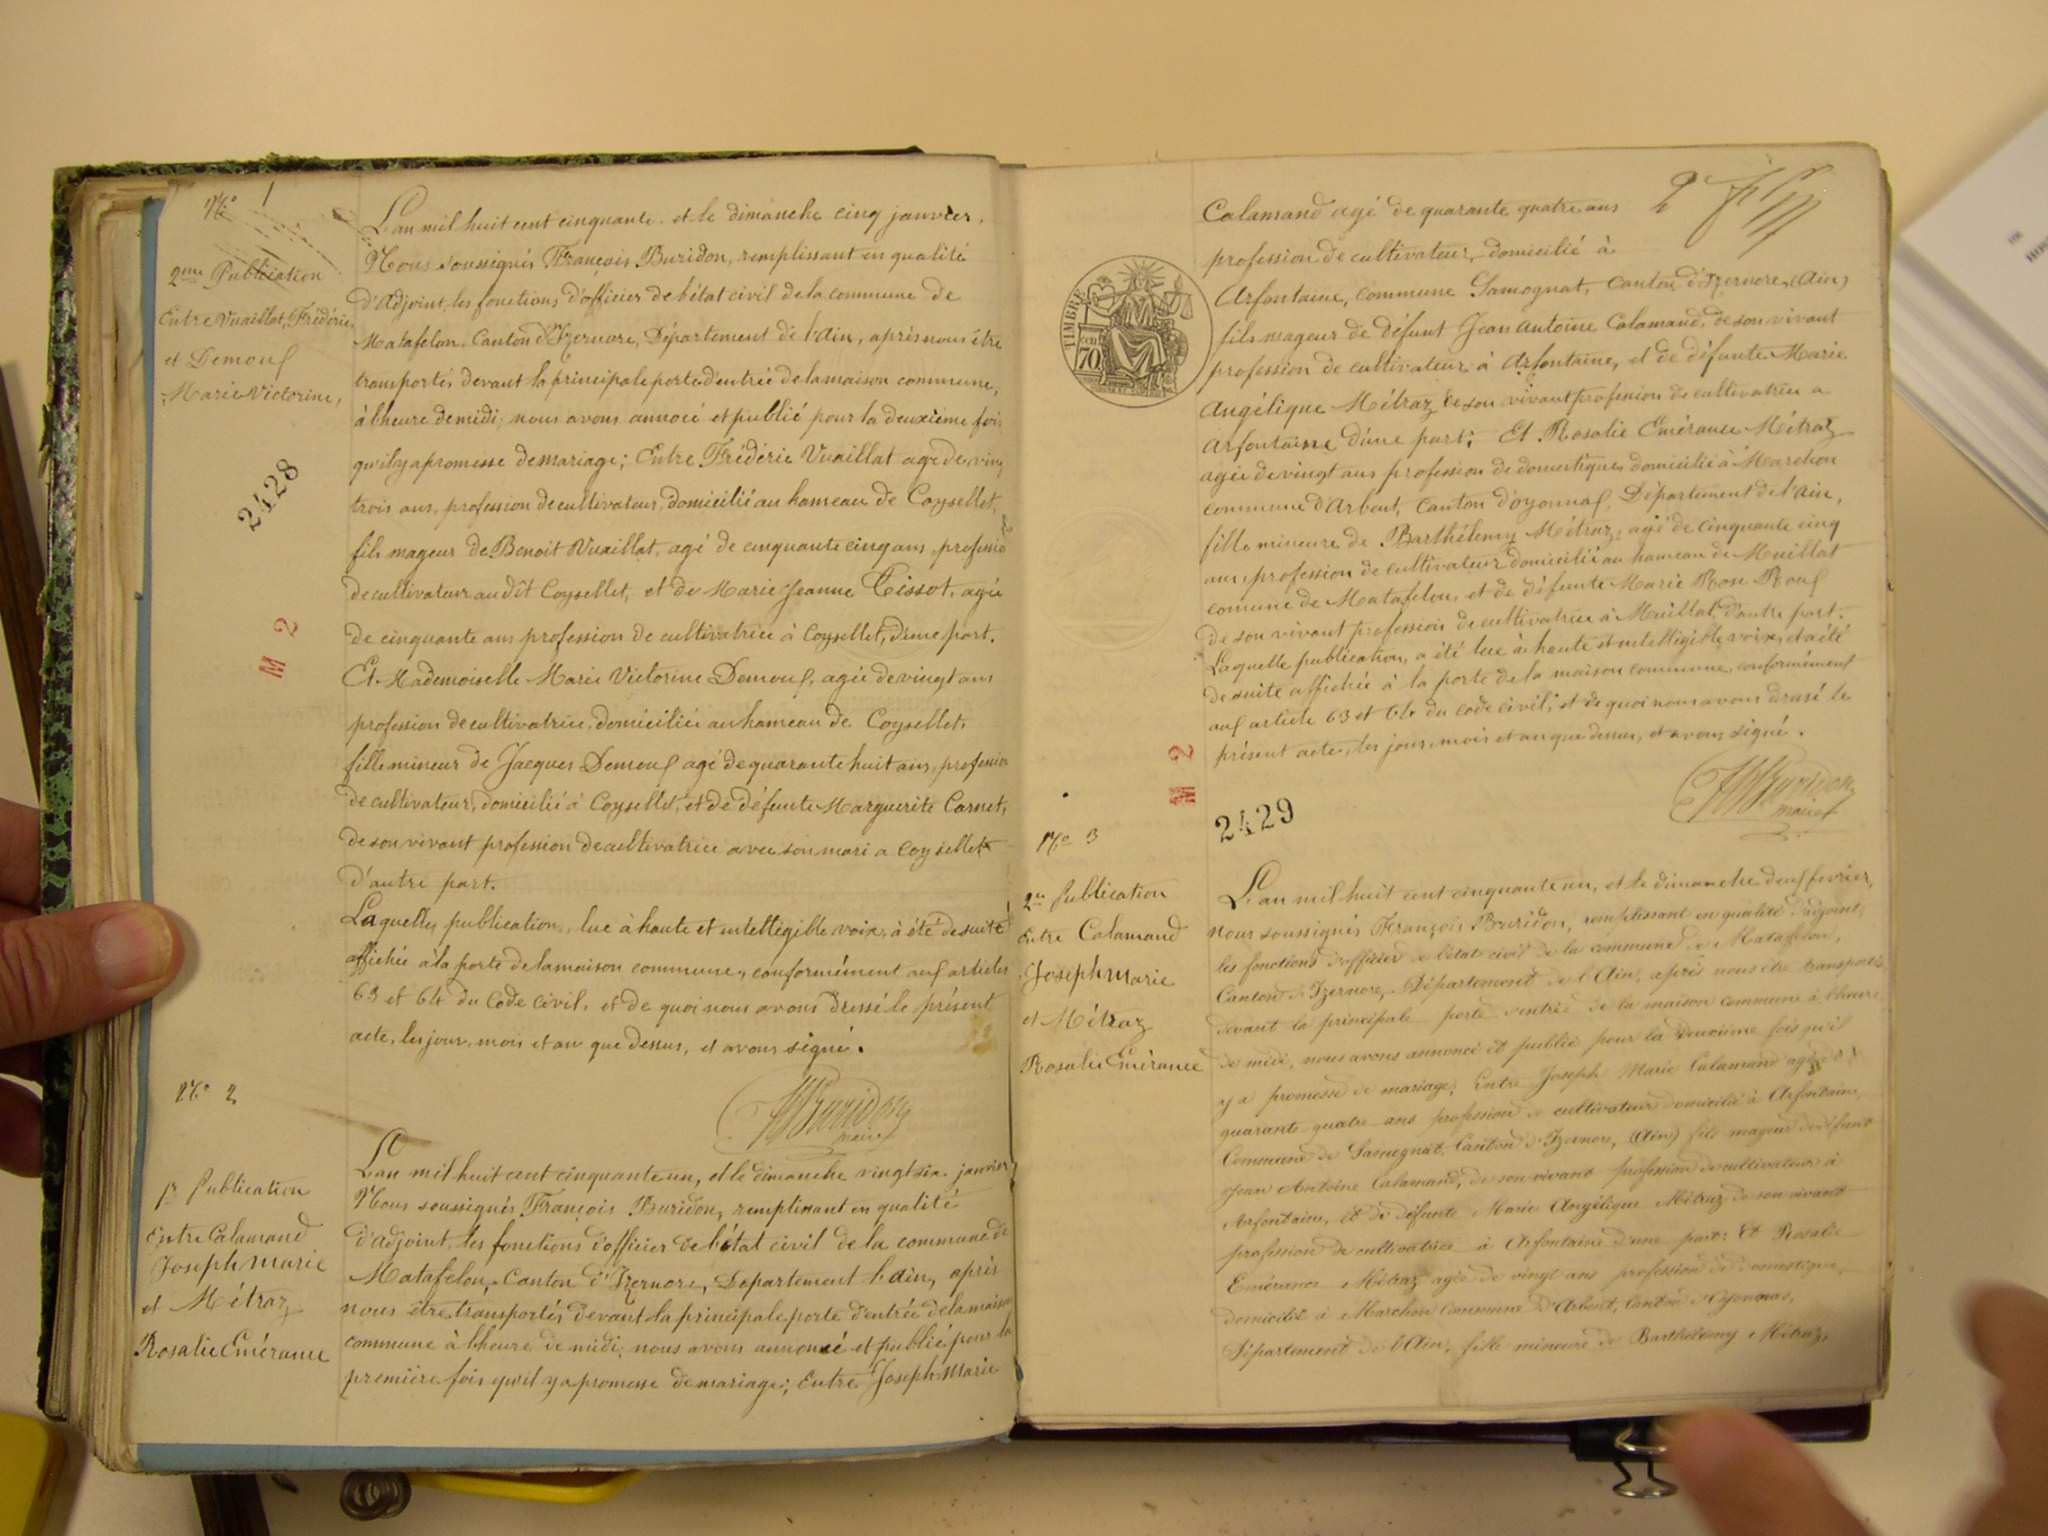 N° 1
2me Publication
Entre Vuaillat, Frédéric
et Demouf
Marie Victorine,
2428
M 2
L'an mil huit cent cinquante et le dimanche cinq janvier,
Nous soussignés François Buridon, remplissant en qualité
d'adjoint, les fonctions d'officier de l'état civil de la commune de
Matafelon, Canton d'Izernore, Département de l'Ain, après nous être
transportés devant la principale porte d'entrée de la maison commune,
à l'heure de midi; nous avons annocé et publié pour la deuxième fois
qu'il y a promesse de mariage; Entre Frédéric Vuaillat agé de vingt
trois ans, profession de cultivateur, domicilié au hameau de Coysellet,
fils mageur de Benoit Vuaillat, agé de cinquante cinq ans, profession
de cultivateur au dît Coysellet, et de Marie Jeanne Tissot, agée
de cinquante ans profession de cultivatrice à Coysellet, d'une part.
Et Mademoiselle Marie Victorine Demouf, agée de vingt ans
profession de cultivatrice, domiciliée au hameau de Coysellet,
fille mineur de Jacques Demouf agé de quarante huit ans, profession
de cultivateur, domicilié à Coysellet, et de défunte Marguerite Carnet,
de son vivant profession de cultivatrice avec son mari a Coysellet
d'autre part.
Laquelle, publication, lue à haute et intelligible voix, à été de suite
affichée à la porte de la maison commune, conformément auf articles
63 et 64 du Code civil, et de quoi nous avons dressé le présent
acte, les jour, mois et an que dessus, et avons signé.
Buridon
N° 2
1re Publication
Entre Calamand
Joseph Marie
et Métraz
Rosalie Emérance
L'an mil huit cent cinquante un, et le dimanche vingt six janvier
Nous soussignés François Buridon, remplissant en qualité
d'adjoint, les fonctions d'officier de l'état civil de la commune de
Matafelon, Canton d'Izernore, Departement l'ain, après
nous être transportés devant la principale porte d'entrée de la maison
commune à l'heure de midi, nous avons annoncé et publié pour la
première fois qu'il y a promesse de mariage; Entre Joseph Marie
2e
Calamand agé de quarante quatre ans
profession de cultivateur, domicilié à
Arfontaine, commune Samognat, Canton d'Izernore, (Ain)
fils mageur de défunt Jean Antoine Calamand, de son vivant
profession de cultivateur à Arfontaine, et de défunte Marie
Angélique Métraz de son vivant profession de cultivatrice a
Arfontaine d'une part; Et Rosalie Emérance Métraz
agée de vingt ans profession de domestique, domicilié à Marchon
commune d'Arbent, Canton d'oyonnaf, Département de l'Ain,
fille mineure de Barthélemy Métraz, agé de cinquante cinq
ans, profession de cultivateur domicilié au hameau de Meillat
comune de Matafelon, et de défunte Marie Rose Rouf
de son vivant profession de cultivatrice à Meillat, d'autre part.
Laquelle publication, a été lue à haute et intelligible voix, et a été
de suite affichée à la porte de la maison commune, conformément
auf article 63 et 64 du code civil, et de quoi nous avons drasé le
présent acte, les jour, mois et an que dessus, et avons signé.
Buridon
TIMBRE
70
M 2
2429
N° 3
2me Publication
Entre Calamand
Joseph Marie
et Métraz
Rosalie Emérance
L'an mil huit cent cinquante un, et le dimanche deuf fevrier,
nous soussignés François Buridon, remplissant en qualité d'adjoint,
les fonctions d'officier de l'état civil de la commune de Matafelon,
Canton d'Izernore, Département de l'Ain, après nous être transportés
devant la principale porte d'entrée de la maison commune à l'heure
de midi, nous avons annoncé et publié pour la deuxième fois qu'il
y a promesse de mariage; Entre Joseph Marie Calamand agé de
quarante quatre ans profession de cultivateur domicilié à Arfontaine,
Commune de Samognat, Canton d'Izernore, (Ain) fils mageur de défunt
Jean Antoine Calamand, de son vivant profession de cultivateur à
Arfontaine, et de défunte Marie Angélique Métraz de son vivant
profession de cultivatrice à Arfontaine d'une part: Et Rosalie
Emérance Métraz agée de vingt ans profession de domestique,
domicilié à Marchon commune d'Arbent, Canton d'Oyonnax,
Département de l'Ain, fille mineure de Barthélemy Métraz,